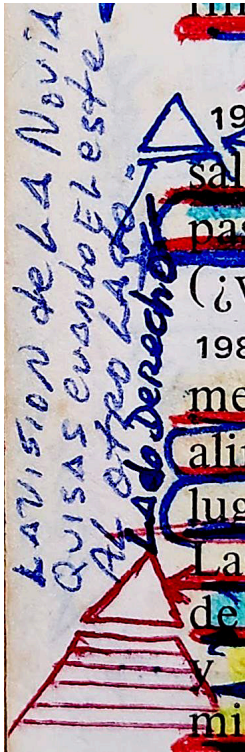 LA VISION de LA Novia
QUISAS cuando EL este
AL OTRO LADO.
LAdo Derecho
19
sal
pas
(¿v
198
me
alin
lug
La
de
y
mi